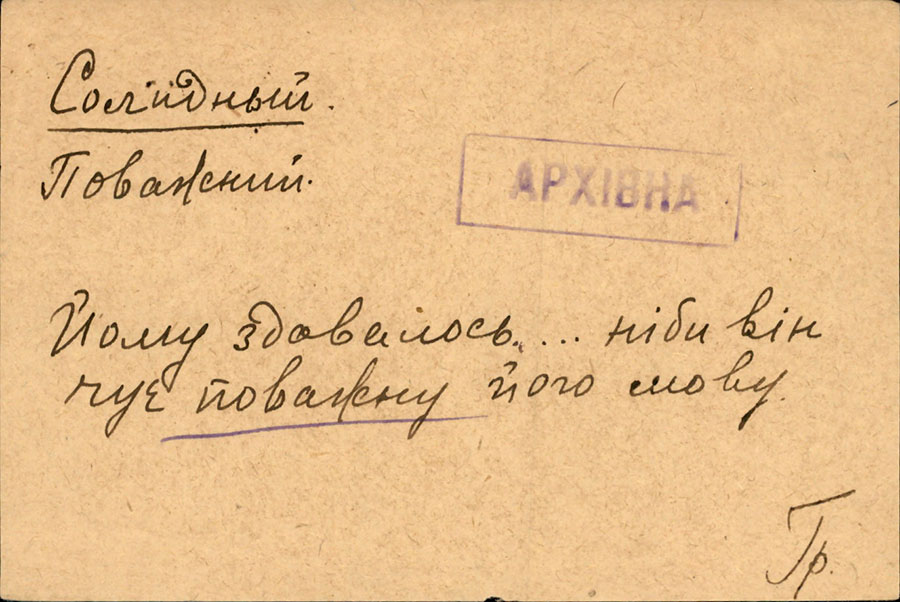 Солидный.
АРХІВНА
Поважний.
Йому здавалось.... ніби він
чує поважну його мову.
Гр.